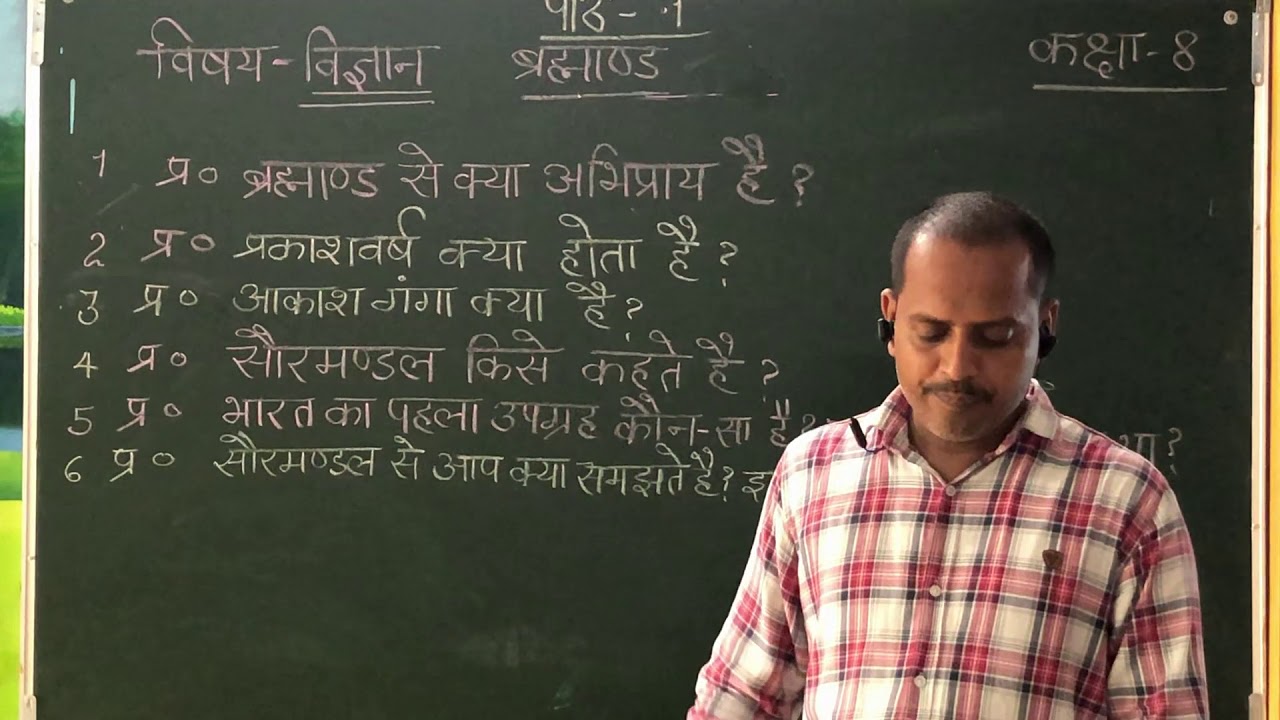 पाठ - 1
विषय - विज्ञान ब्रह्माण्ड कक्षा - 8
1 प्र० ब्रह्माण्ड से क्या अभिप्राय है ?
2 प्र० प्रकाशवर्ष क्या होता है ?
3 प्र० आकाश गंगा क्या है ?
4 प्र० सौरमण्डल किसे कहते है ?
5 प्र० भारत का पहला उपग्रह कौन-सा है ?
6 प्र० सौरमण्डल से आप क्या समझते है ?